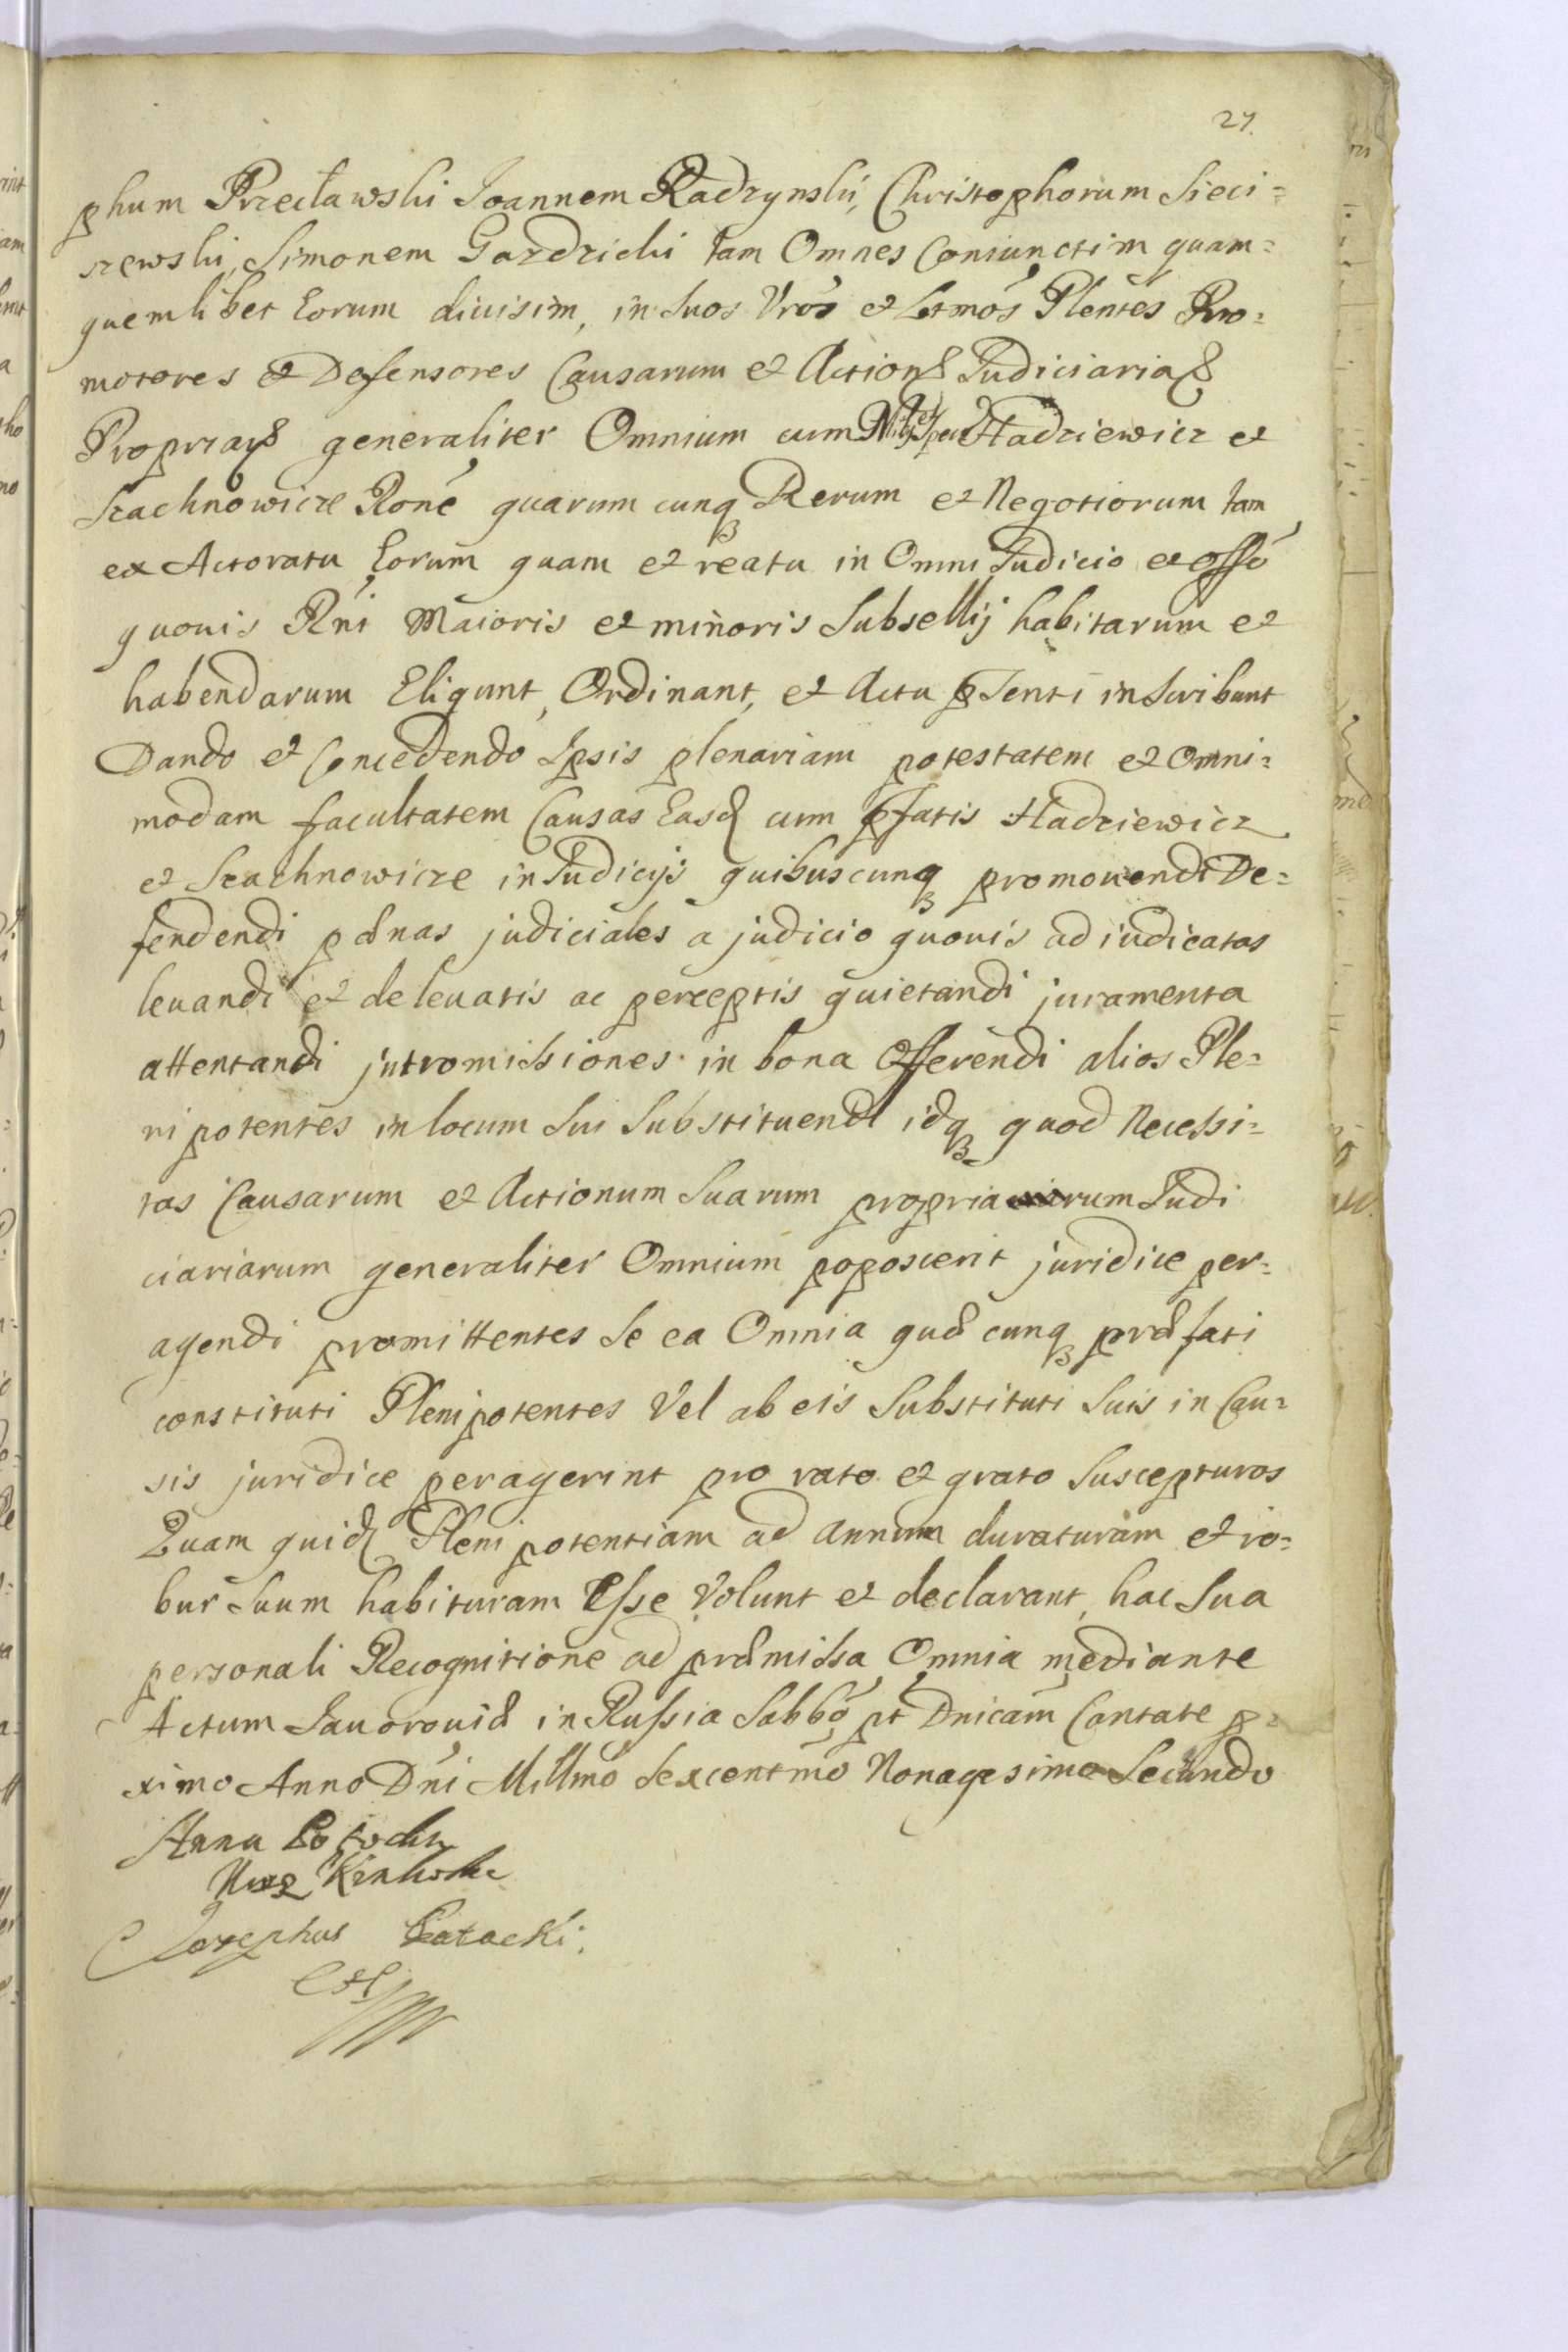 27.
phum Przecławski Joannem Radzynski, Christophorum Sieci=
szewski, Simonem Gozdzicki tam Omnes Coniunctim quam=
quemlibet Eorum diuisim, in Suos Vros et Lttmos Plentes Pro=
motores et Defensores Causarum et Action Judiciaria
Propria generaliter Omnium cum Hadziewicz et
Stachnowicze Rone quarumcunq Rerum et Negotiorum tam
ex Actoratu Eorum quam et reatu in Omni Judicio et offo
quouis Rni Maioris et minoris Subsellij habitarum et
habendarum Eligunt, Ordinant, et Actu psenti inscribunt
Dando et Concedendo Ipsis plenariam potestatem et Omni=
modam facultatem Causas Easd cum pfatis Hadziewicz
et Stachnowicze in Judicijs quibuscunq promouendi De=
fendendi pænas judiciales a judicio quouis adiudicatas
leuandi et de leuatis ac perceptis quietandi juramenta
attentandi jntromissiones in bona Offerendi alios Ple=
nipotentes in locum Sui Substituendi idq quod Necessi=
tas Causarum et Actionum Suarum propriarum Judi
ciariarum generaliter Omnium poposcerit juridice per=
agendi promittentes Se ea Omnia quæcunq præfati
constituti Plenipotentes Vel ab eis Substituti Suis in Cau=
sis juridice peragerint pro rato et grato Suscepturos
Quam quid Plenipotentiam ad annum duraturam et ro=
bur Suum habituram Esse Volunt et declarant, hac Sua
personali Recognitione ad præmissa Omnia mediante
Actum Jauorouiæ in Russia Sabbo pt Dnicam Cantate p=
ximo Anno Dni Millmo Sexcentmo Nonagesimo Secundo
Anna Potocka
Josephus Potocki.